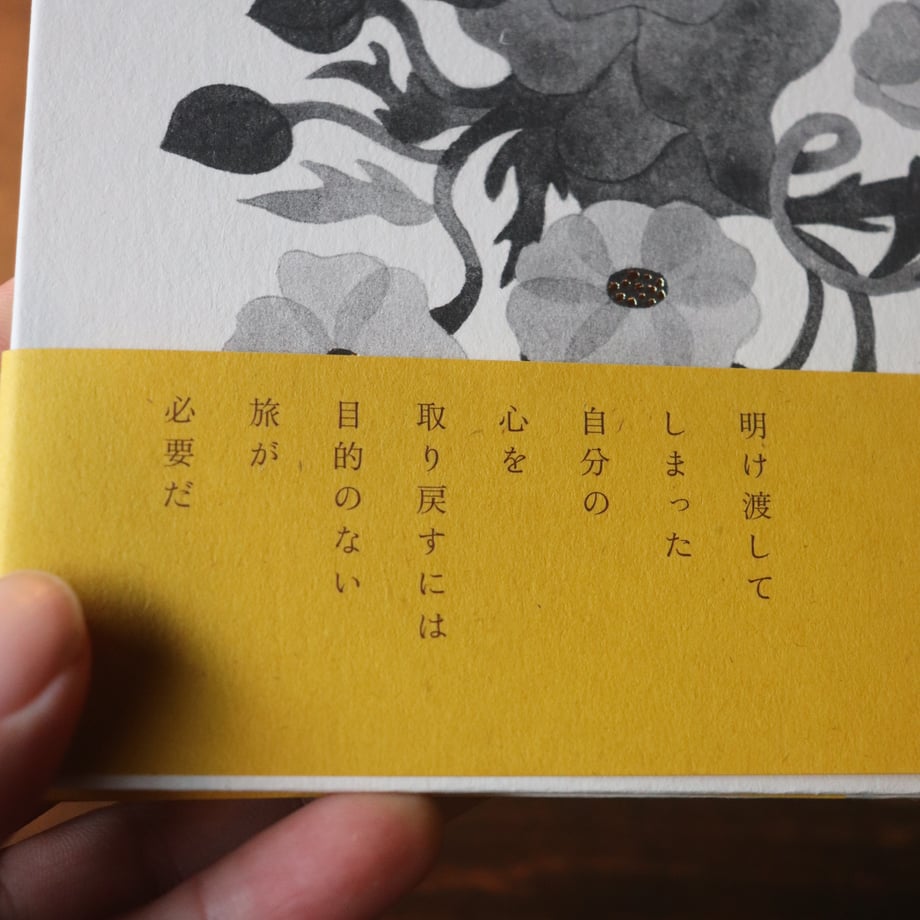 明け渡して
しまった
自分の
心を
取り戻すには
目的のない
旅が
必要だ